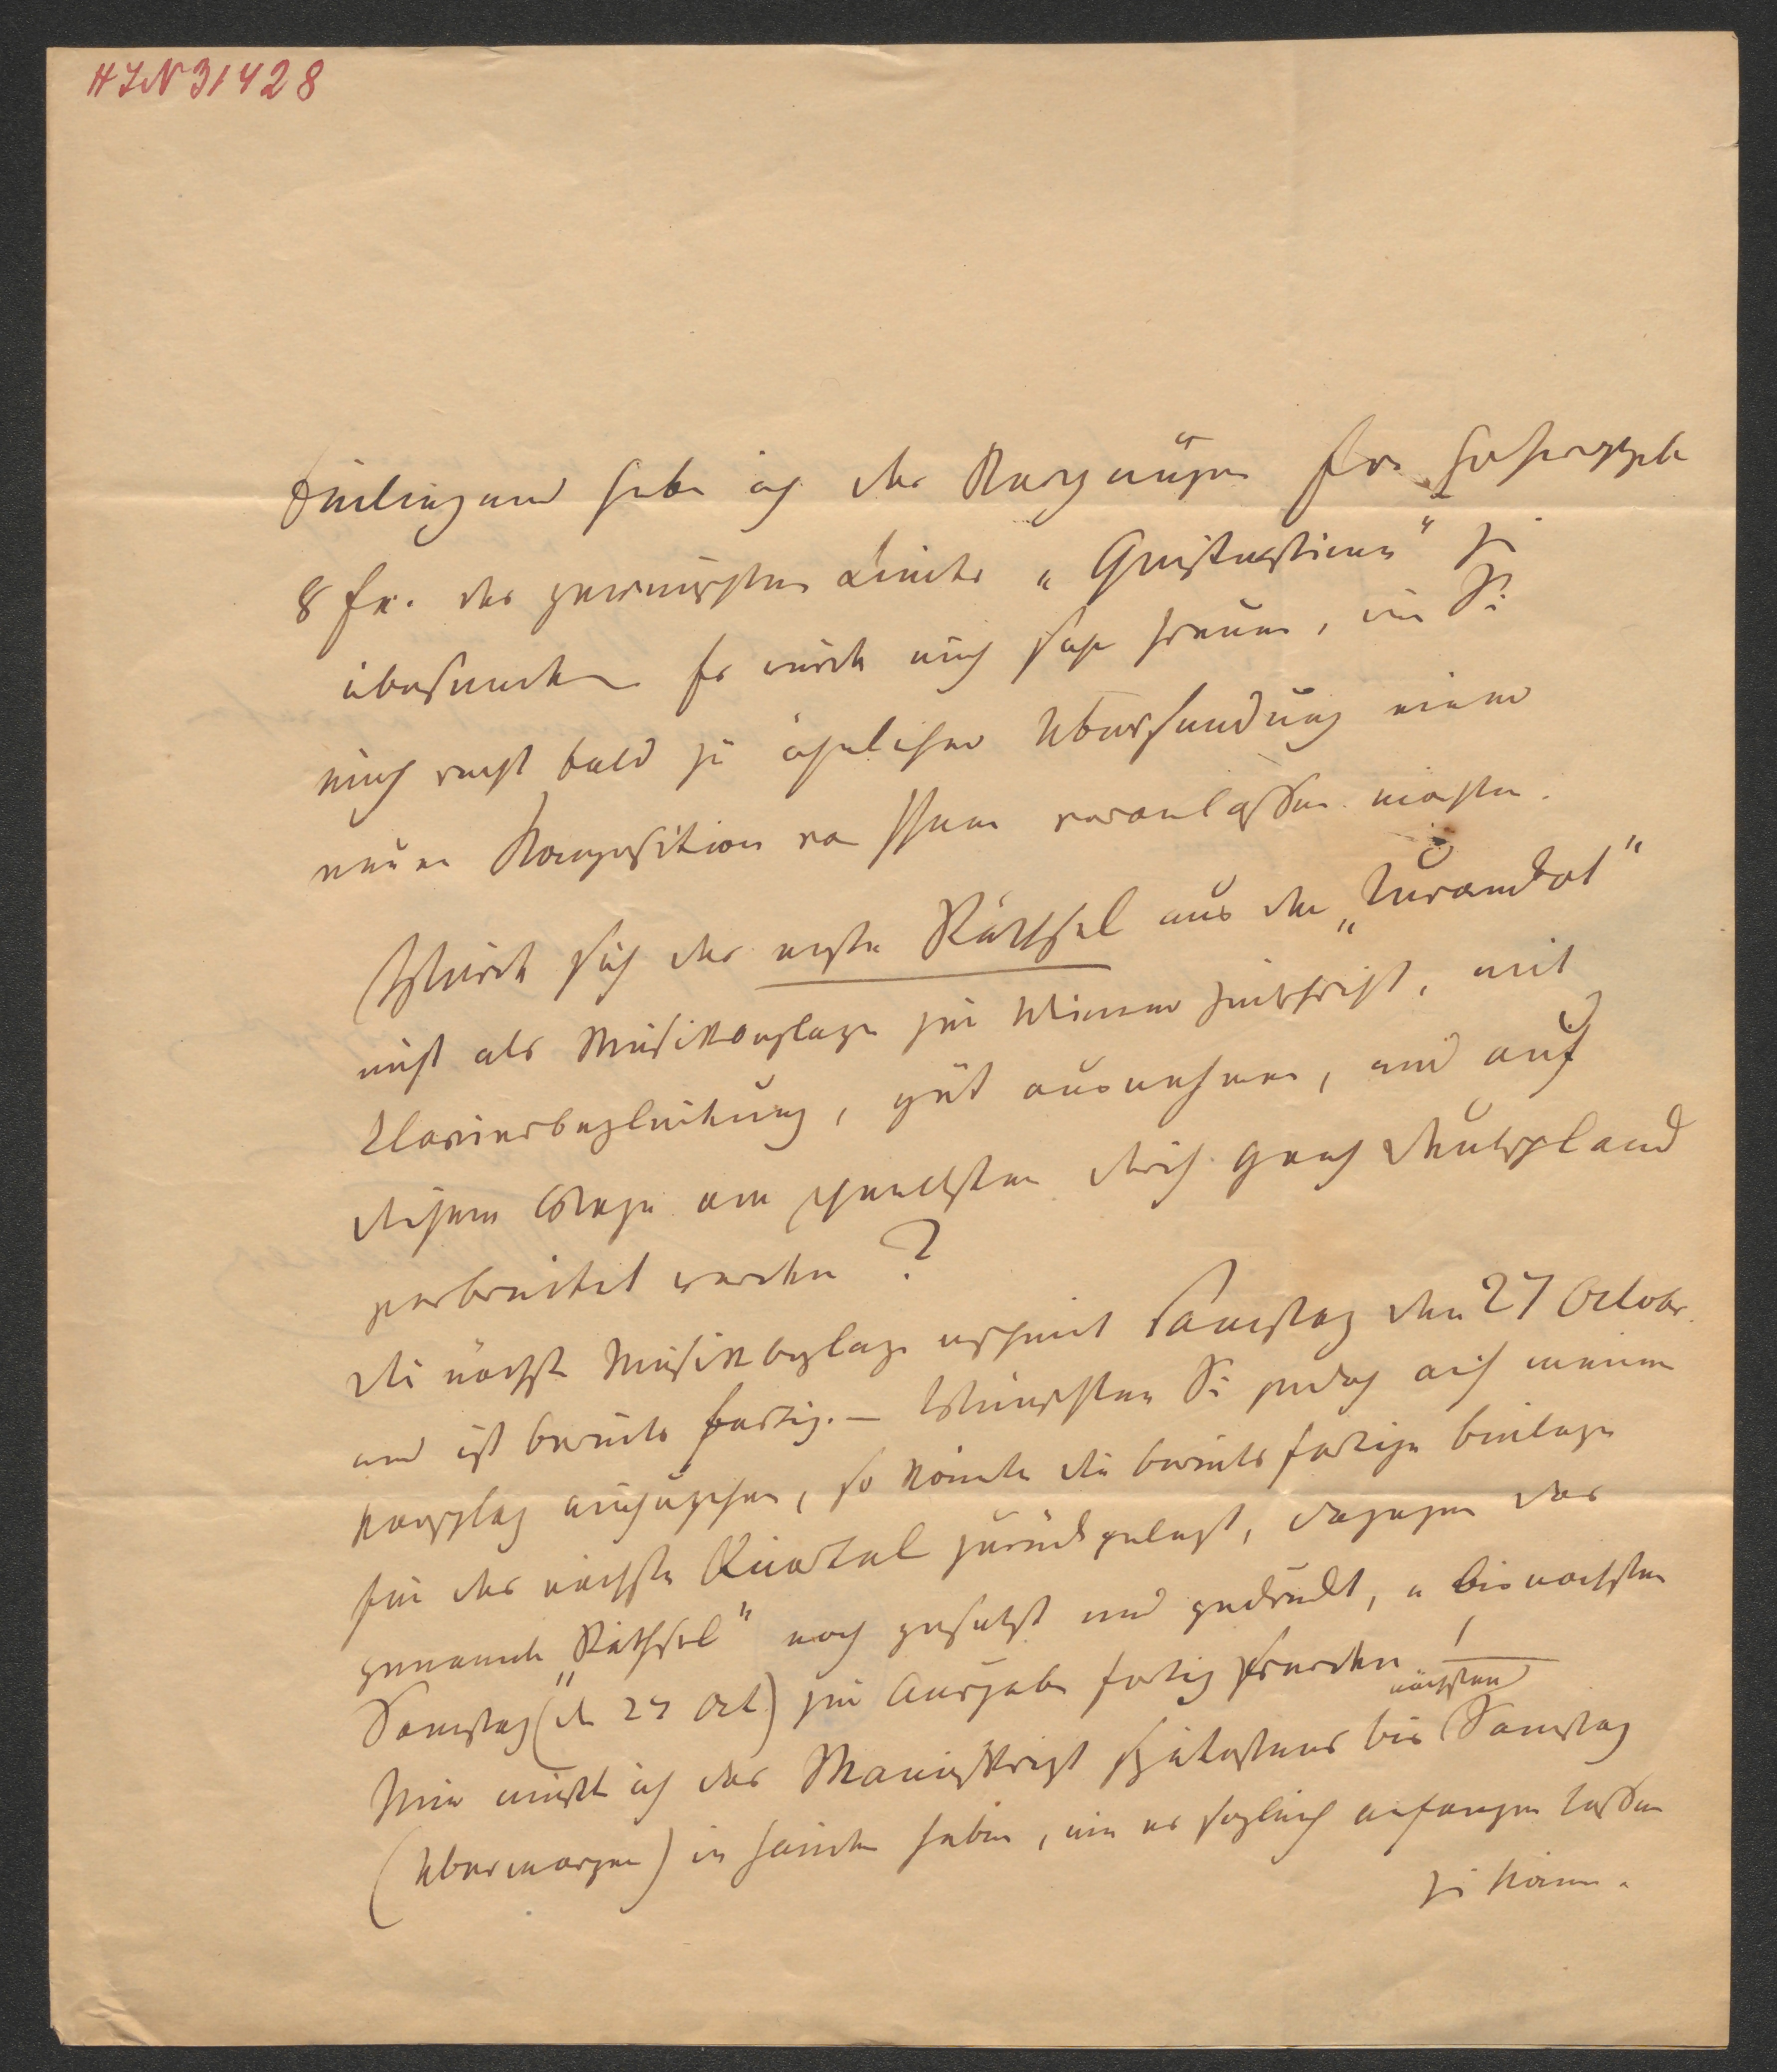 HIN 31428
Beiliegend habe ich das Vergnügen Ew. Hochwohlgb
8 Ex. des gewünschten Liedes „Geistesstimme" zu
übersenden. Es würde mich sehr freuen, wen Sie
mich recht bald zu ähnlicher Übersendung einer
neuen Komposition von Ihnen veranlaßen möchten.
Würde sich das erste Räthsel aus der „Turandot"
nicht als Musikbeylage zur Wiener Zeitschrift, mit
Klavierbegleitung, gut ausnehmen, und auf
diesem Wege am schnellsten durch ganz Deutschland
verbreitet werden?
Die nächste Musikbeylage erscheint Samstag den 27 October.
und ist bereits fertig. – Wünschten Sie jedoch auf meinen
Vorschlag einzugehen, so könnte die bereits fertige Beilage
für das nächste Quartal zurückgelegt, dagegen das
genannte „Räthsel" noch gesetzt und gedruckt, u bis nächsten
Samstag (den 27 Oct) zur Ausgabe fertig werden!
nächsten
Nur müßte ich das Manuskript spätestens bis Samstag
(übermorgen) in Händen haben, um es sogleich anfangen laßen
zu können.